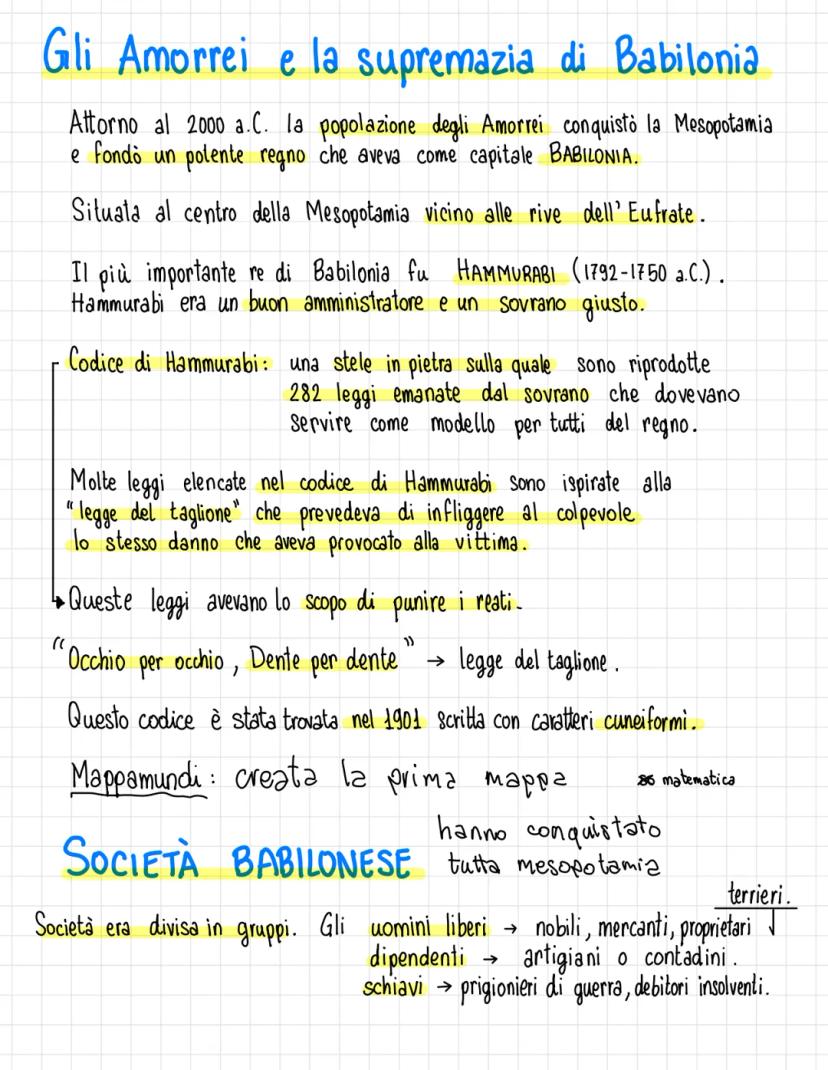 Gli Amorrei e la supremazia di Babilonia
Attorno al 2000 a.C. la popolazione degli Amorrei conquistò la Mesopotamia
e fondò un potente regno che aveva come capitale BABILONIA.
Situata al centro della Mesopotamia vicino alle rive dell'Eufrate.
Il più importante re di Babilonia fu HAMMURABI (1792-1750 a.C.).
Hammurabi era un buon amministratore e un sovrano giusto.
Codice di Hammurabi: una stele in pietra sulla quale sono riprodotte
282 leggi emanate dal sovrano che dovevano
servire come modello per tutti del regno.
Molte leggi elencate nel codice di Hammurabi sono ispirate alla
"legge del taglione" che prevedeva di infliggere al colpevole
lo stesso danno che aveva provocato alla vittima.
→ Queste leggi avevano lo scopo di punire i reati.
"Occhio per occhio, Dente per dente" → legge del taglione.
Questo codice è stata trovata nel 1901 scritta con caratteri cuneiformi.
Mappamundi: creata la prima mappa
matematica
hanno conquistato
SOCIETÀ BABILONESE tutta mesopotamia
terrieri.
Società era divisa in gruppi. Gli uomini liberi → nobili, mercanti, proprietari ↓
dipendenti → artigiani o contadini.
schiavi → prigionieri di guerra, debitori insolventi.